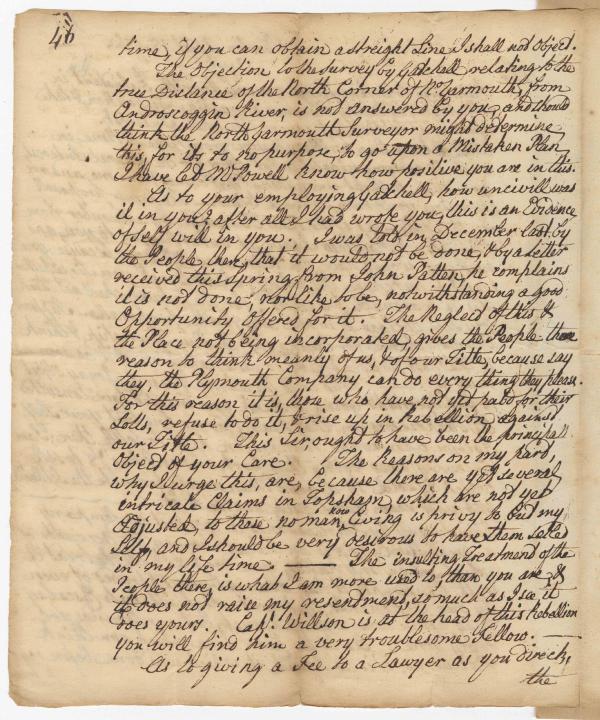 46
time, if you can obtain a streight Line I shall not Object.
The Objection to the Survey by Gatchell relating to the
true Distance of the North Corner of No. Yarmouth, from
Androscoggin River, is not answered by you, and should
think the North Yarmouth Surveyor might determine
this, for its to no purpose, to go upon a Mistaken Plan
I have let Mr Powell know how positive you are in this.
As to your employing Gatchell, how uncivill was
it in you? after all I had wrote you, this is an Evidence
of Self will in you. I was told in December last by
the People here, that it would not be done, & by a Letter
received this Spring from John Patten, he complains
it is not done, nor like to be, notwithstanding a good
Opportunity offered for it. The Neglect of this &
the Place not being incorporated, gives the People there
reason to think meanly of us, & of our Title, because say
they, the Plymouth Company can do every thing they please.
For this reason it is, those who have not yet paid for their
Lotts, refuse to do it, & rise up in Rebellion against
our Title. This Sir, ought to have been the principall
Object of your Care. The Reasons on my part,
why I urge this, are, because there are yet several
intricate Claims in Topsham, which are not yet
Adjusted, to these no man now Living is privy to but my
Self, and I should be very desirous to have them setled
in my life time. — The insulting Treatment of the
People there, is what I am more used to than you are &
it does not raise my resentment, so much as I see it
does yours. Capt. Willson is at the head of this Rebellion
you will find him a very troublesome Fellow. —
As to giving a Fee to a Lawyer as you direct,
the